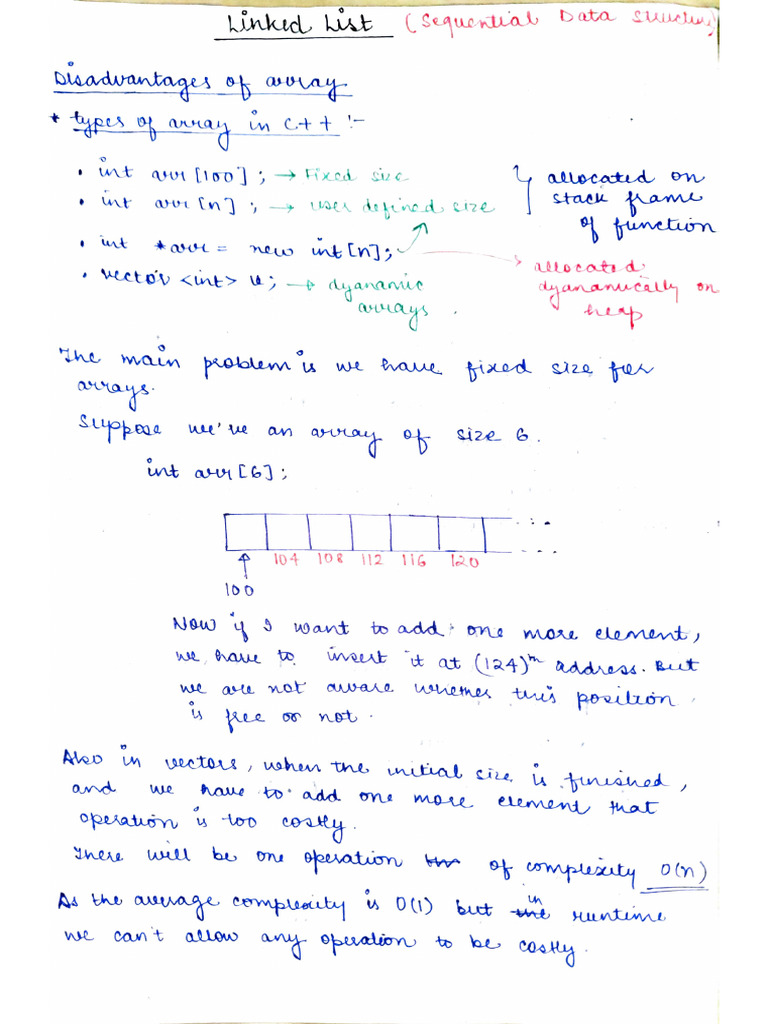 Linked List (Sequential Data Structure)
Disadvantages of array
* types of array in C++ :-
• int arr[100]; → Fixed size
• int arr[n]; → user defined size
} allocated on
stack frame
of function
• int *arr = new int[n];
→ allocated
dyanamically on
heap
• vector <int> v; → dyanamic
arrays.
The main problem is we have fixed size for
arrays.
Suppose we've an array of size 6.
int arr[6];
104 108 112 116 120
100
Now if I want to add one more element,
we have to insert it at (124)th address. But
we are not aware whether this position
is free or not.
Also in vectors, when the initial size is finished,
and we have to add one more element that
operation is too costly.
There will be one operation of complexity O(n)
As the average complexity is O(1) but in runtime
we can't allow any operation to be costly.